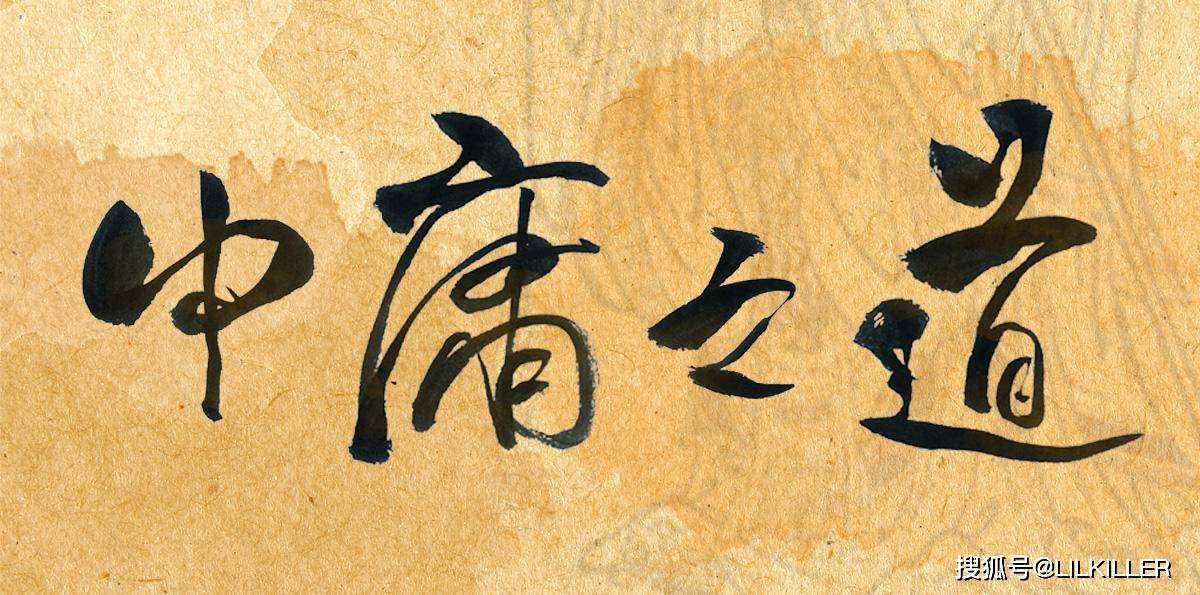 中庸之道
搜狐号@LILKILLER